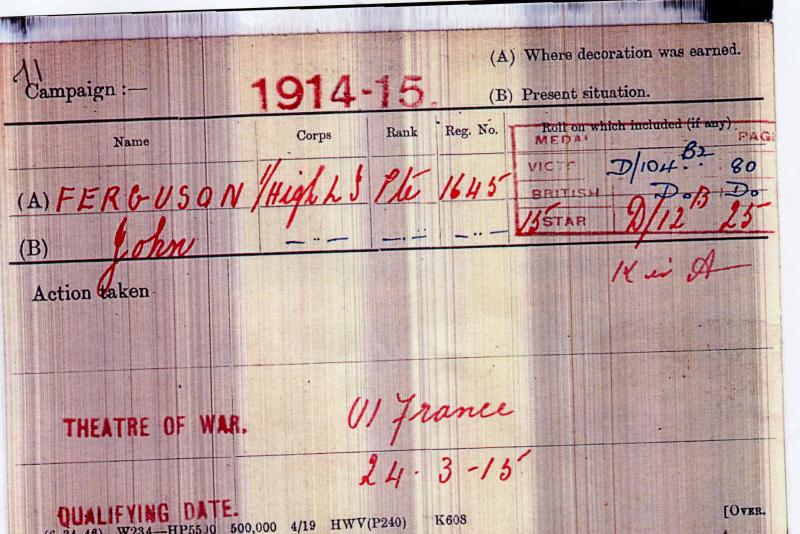 11
(A) Where decoration was earned.
Campaign :— 1914-15. (B) Present situation.
Name Corps Rank Reg. No. Roll on which included (if any)
MEDAL PAGE
VICTY D/104 B2 80
(A) FERGUSON /High L I Pte 1645 BRITISH Do B Do
15 STAR D/12 25
(B) John — " — — " — — " —
K in A
Action taken
THEATRE OF WAR. (1) France
24 · 3 - 15
QUALIFYING DATE.
W234—HP5590 500,000 4/19 HWV(P240) K608 [OVER.